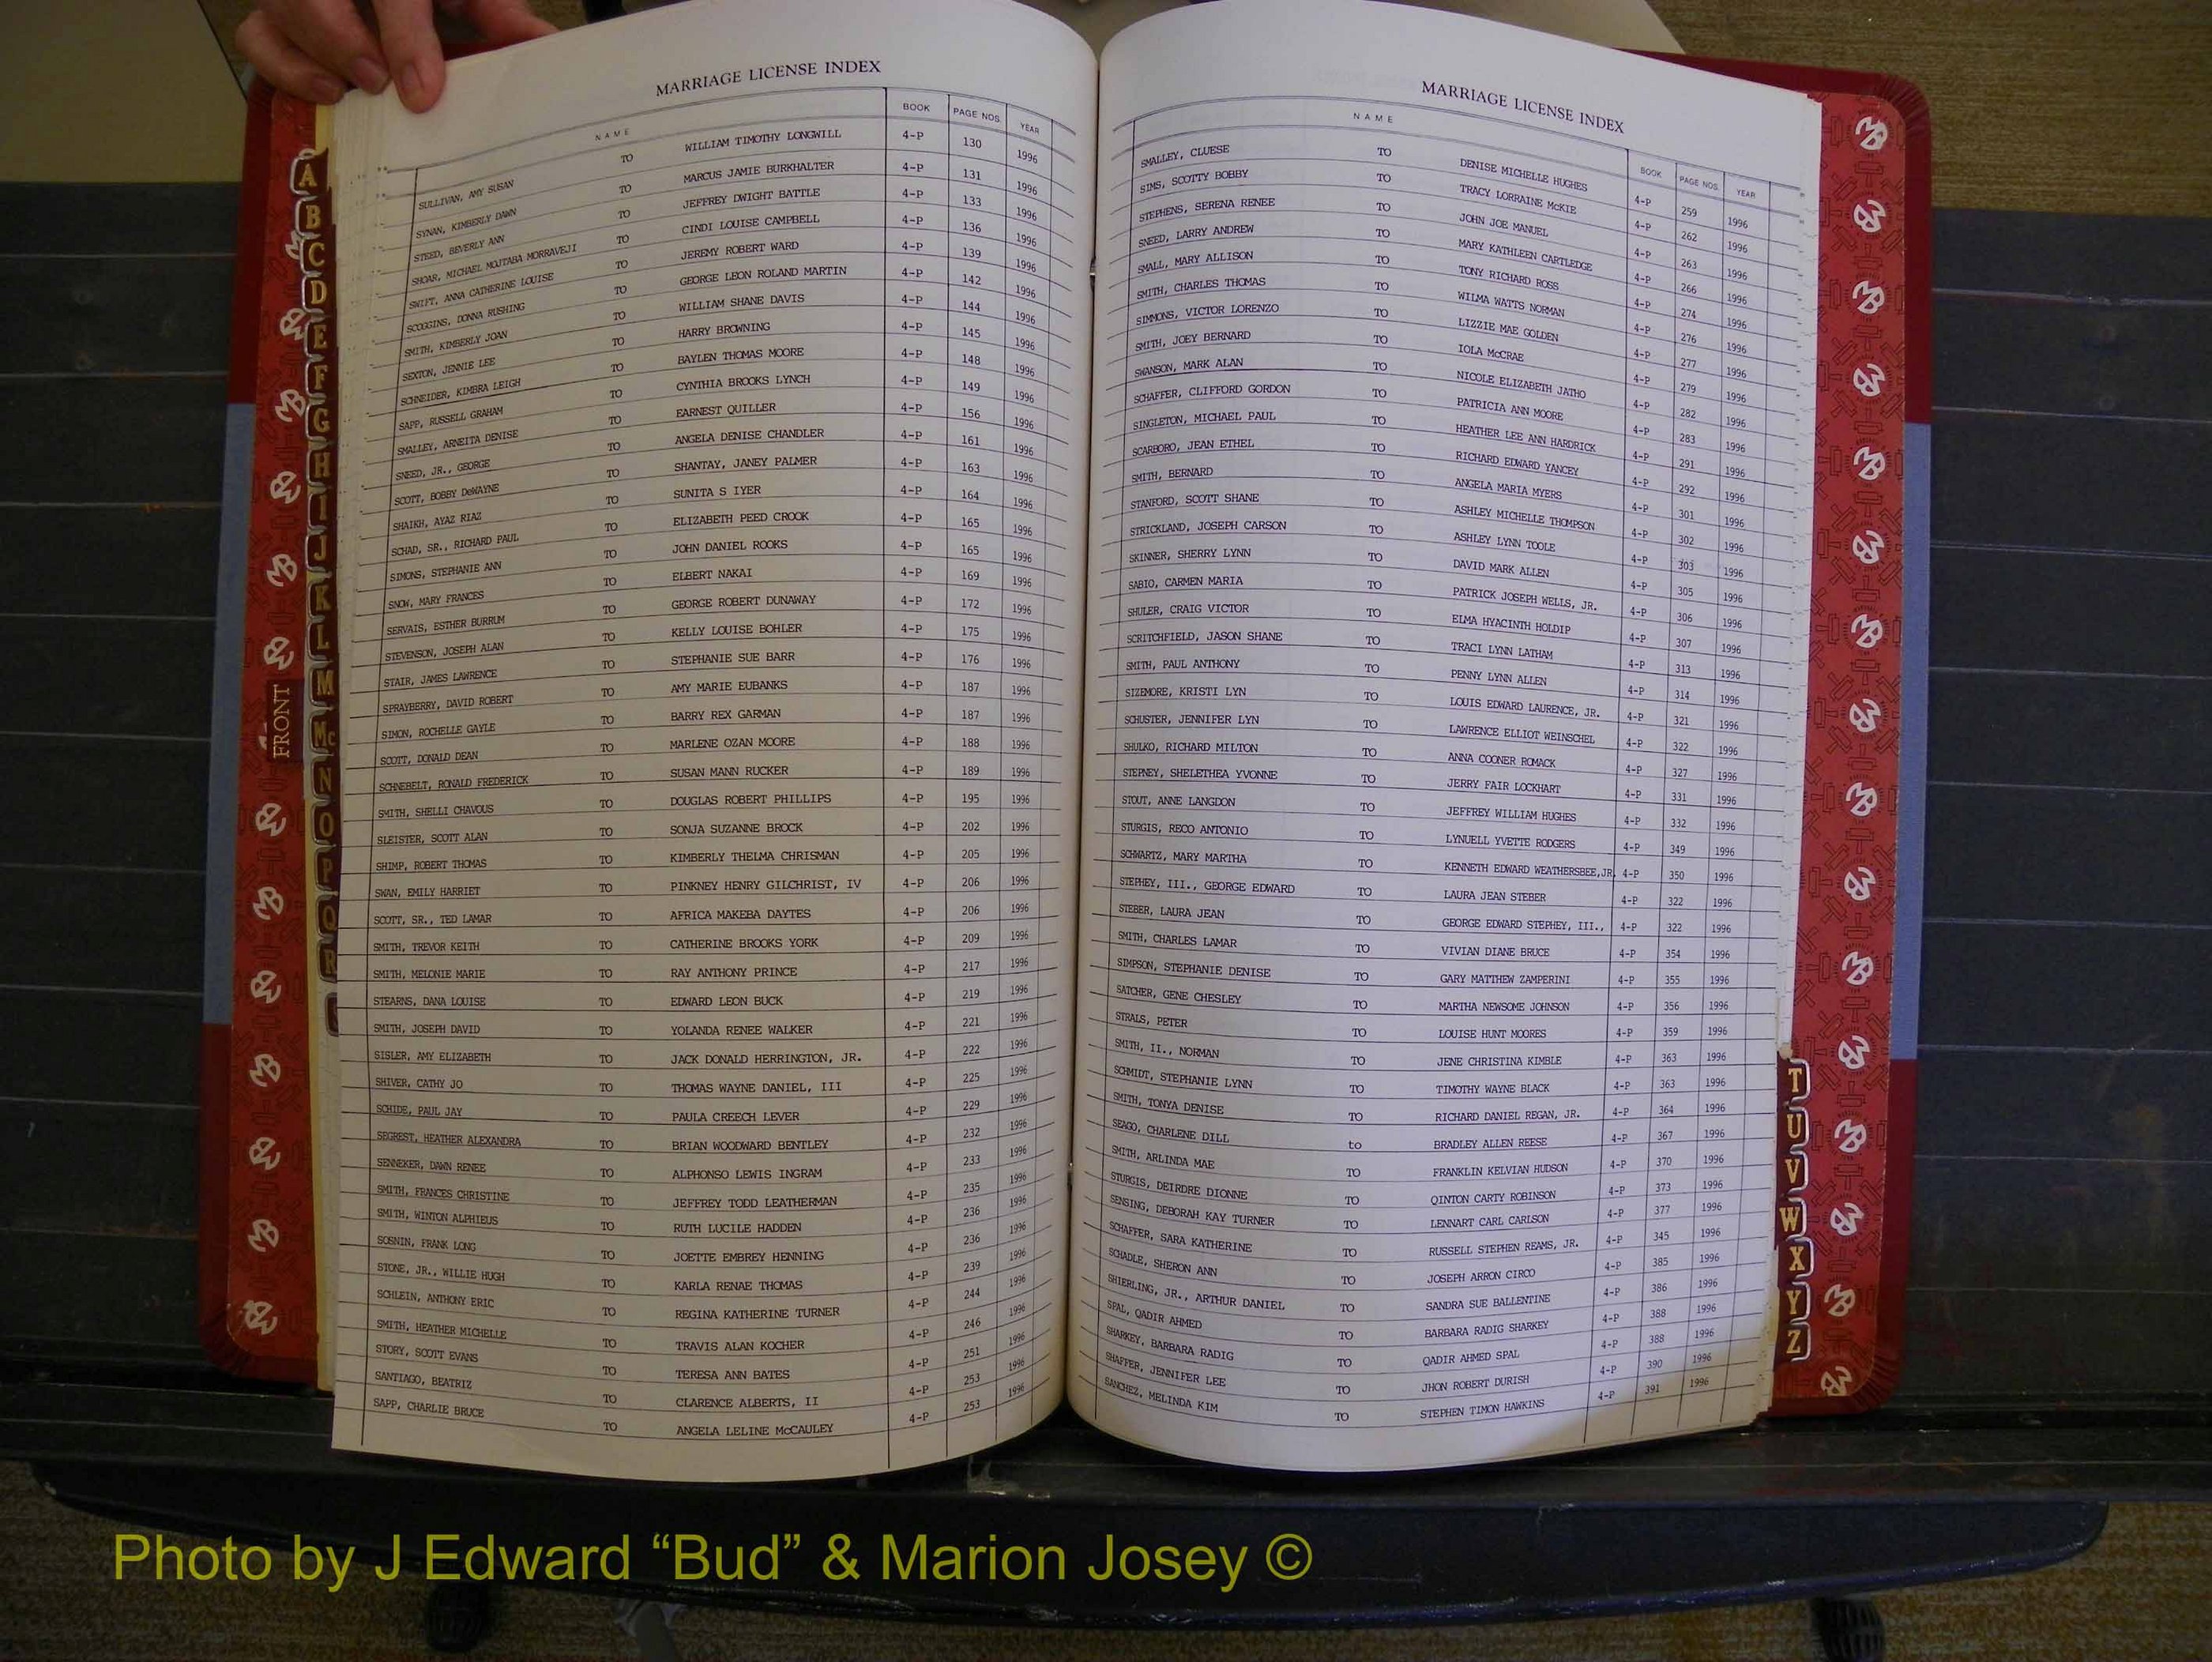 MARRIAGE LICENSE INDEX
NAME BOOK PAGE NOS. YEAR
SULLIVAN, AMY SUSAN TO WILLIAM TIMOTHY LONGWILL 4-P 130 1996
SYNAN, KIMBERLY DAWN TO MARCUS JAMIE BURKHALTER 4-P 131 1996
STEED, BEVERLY ANN TO JEFFREY DWIGHT BATTLE 4-P 133 1996
SHOAR, MICHAEL MOJTABA MORRAVEJI TO CINDI LOUISE CAMPBELL 4-P 136 1996
SWIFT, ANNA CATHERINE LOUISE TO JEREMY ROBERT WARD 4-P 139 1996
SCOGGINS, DONNA RUSHING TO GEORGE LEON ROLAND MARTIN 4-P 142 1996
SMITH, KIMBERLY JOAN TO WILLIAM SHANE DAVIS 4-P 144 1996
SEXTON, JENNIE LEE TO HARRY BROWNING 4-P 145 1996
SCHNEIDER, KIMBRA LEIGH TO BAYLEN THOMAS MOORE 4-P 148 1996
SAPP, RUSSELL GRAHAM TO CYNTHIA BROOKS LYNCH 4-P 149 1996
SMALLEY, ARNEITA DENISE TO EARNEST QUILLER 4-P 156 1996
SNEED, JR., GEORGE TO ANGELA DENISE CHANDLER 4-P 161 1996
SCOTT, BOBBY DeWAYNE TO SHANTAY, JANEY PALMER 4-P 163 1996
SHAIKH, AYAZ RIAZ TO SUNITA S IYER 4-P 164 1996
SCHAD, SR., RICHARD PAUL TO ELIZABETH PEED CROOK 4-P 165 1996
SIMONS, STEPHANIE ANN TO JOHN DANIEL ROOKS 4-P 165 1996
SNOW, MARY FRANCES TO ELBERT NAKAI 4-P 169 1996
SERVAIS, ESTHER BURRUM TO GEORGE ROBERT DUNAWAY 4-P 172 1996
STEVENSON, JOSEPH ALAN TO KELLY LOUISE BOHLER 4-P 175 1996
STAIR, JAMES LAWRENCE TO STEPHANIE SUE BARR 4-P 176 1996
SPRAYBERRY, DAVID ROBERT TO AMY MARIE EUBANKS 4-P 187 1996
SIMON, ROCHELLE GAYLE TO BARRY REX GARMAN 4-P 187 1996
SCOTT, DONALD DEAN TO MARLENE OZAN MOORE 4-P 188 1996
SCHNEBELT, RONALD FREDERICK TO SUSAN MANN RUCKER 4-P 189 1996
SMITH, SHELLI CHAVOUS TO DOUGLAS ROBERT PHILLIPS 4-P 195 1996
SLEISTER, SCOTT ALAN TO SONJA SUZANNE BROCK 4-P 202 1996
SHIMP, ROBERT THOMAS TO KIMBERLY THELMA CHRISMAN 4-P 205 1996
SWAN, EMILY HARRIET TO PINKNEY HENRY GILCHRIST, IV 4-P 206 1996
SCOTT, SR., TED LAMAR TO AFRICA MAKEBA DAYTES 4-P 206 1996
SMITH, TREVOR KEITH TO CATHERINE BROOKS YORK 4-P 209 1996
SMITH, MELONIE MARIE TO RAY ANTHONY PRINCE 4-P 217 1996
STEARNS, DANA LOUISE TO EDWARD LEON BUCK 4-P 219 1996
SMITH, JOSEPH DAVID TO YOLANDA RENEE WALKER 4-P 221 1996
SISLER, AMY ELIZABETH TO JACK DONALD HERRINGTON, JR. 4-P 222 1996
SHIVER, CATHY JO TO THOMAS WAYNE DANIEL, III 4-P 225 1996
SCHIDE, PAUL JAY TO PAULA CREECH LEVER 4-P 229 1996
SEGREST, HEATHER ALEXANDRA TO BRIAN WOODWARD BENTLEY 4-P 232 1996
SENNEKER, DAWN RENEE TO ALPHONSO LEWIS INGRAM 4-P 233 1996
SMITH, FRANCES CHRISTINE TO JEFFREY TODD LEATHERMAN 4-P 235 1996
SMITH, WINTON ALPHIEUS TO RUTH LUCILE HADDEN 4-P 236 1996
SOSNIN, FRANK LONG TO JOETTE EMBREY HENNING 4-P 236 1996
STONE, JR., WILLIE HUGH TO KARLA RENAE THOMAS 4-P 239 1996
SCHLEIN, ANTHONY ERIC TO REGINA KATHERINE TURNER 4-P 244 1996
SMITH, HEATHER MICHELLE TO TRAVIS ALAN KOCHER 4-P 246 1996
STORY, SCOTT EVANS TO TERESA ANN BATES 4-P 251 1996
SANTIAGO, BEATRIZ TO CLARENCE ALBERTS, II 4-P 253 1996
SAPP, CHARLIE BRUCE TO ANGELA LELINE McCAULEY 4-P 253 1996
MARRIAGE LICENSE INDEX
NAME BOOK PAGE NOS. YEAR
SMALLEY, CLUESE TO DENISE MICHELLE HUGHES 4-P 259 1996
SIMS, SCOTTY BOBBY TO TRACY LORRAINE McKIE 4-P 262 1996
STEPHENS, SERENA RENEE TO JOHN JOE MANUEL 4-P 263 1996
SNEED, LARRY ANDREW TO MARY KATHLEEN CARTLEDGE 4-P 266 1996
SMALL, MARY ALLISON TO TONY RICHARD ROSS 4-P 274 1996
SMITH, CHARLES THOMAS TO WILMA WATTS NORMAN 4-P 276 1996
SIMMONS, VICTOR LORENZO TO LIZZIE MAE GOLDEN 4-P 277 1996
SMITH, JOEY BERNARD TO IOLA McCRAE 4-P 279 1996
SWANSON, MARK ALAN TO NICOLE ELIZABETH JATHO 4-P 282 1996
SCHAFFER, CLIFFORD GORDON TO PATRICIA ANN MOORE 4-P 283 1996
SINGLETON, MICHAEL PAUL TO HEATHER LEE ANN HARDRICK 4-P 291 1996
SCARBORO, JEAN ETHEL TO RICHARD EDWARD YANCEY 4-P 292 1996
SMITH, BERNARD TO ANGELA MARIA MYERS 4-P 301 1996
STANFORD, SCOTT SHANE TO ASHLEY MICHELLE THOMPSON 4-P 302 1996
STRICKLAND, JOSEPH CARSON TO ASHLEY LYNN TOOLE 4-P 303 1996
SKINNER, SHERRY LYNN TO DAVID MARK ALLEN 4-P 305 1996
SABIO, CARMEN MARIA TO PATRICK JOSEPH WELLS, JR. 4-P 306 1996
SHULER, CRAIG VICTOR TO ELMA HYACINTH HOLDIP 4-P 307 1996
SCRITCHFIELD, JASON SHANE TO TRACI LYNN LATHAM 4-P 313 1996
SMITH, PAUL ANTHONY TO PENNY LYNN ALLEN 4-P 314 1996
SIZEMORE, KRISTI LYN TO LOUIS EDWARD LAURENCE, JR. 4-P 321 1996
SCHUSTER, JENNIFER LYN TO LAWRENCE ELLIOT WEINSCHEL 4-P 322 1996
SHULKO, RICHARD MILTON TO ANNA COONER ROMACK 4-P 327 1996
STEPNEY, SHELETHEA YVONNE TO JERRY FAIR LOCKHART 4-P 331 1996
STOUT, ANNE LANGDON TO JEFFREY WILLIAM HUGHES 4-P 332 1996
STURGIS, RECO ANTONIO TO LYNUELL YVETTE RODGERS 4-P 349 1996
SCHWARTZ, MARY MARTHA TO KENNETH EDWARD WEATHERSBEE,JR 4-P 350 1996
STEPHEY, III., GEORGE EDWARD TO LAURA JEAN STEBER 4-P 322 1996
STEBER, LAURA JEAN TO GEORGE EDWARD STEPHEY, III., 4-P 322 1996
SMITH, CHARLES LAMAR TO VIVIAN DIANE BRUCE 4-P 354 1996
SIMPSON, STEPHANIE DENISE TO GARY MATTHEW ZAMPERINI 4-P 355 1996
SATCHER, GENE CHESLEY TO MARTHA NEWSOME JOHNSON 4-P 356 1996
STRALS, PETER TO LOUISE HUNT MOORES 4-P 359 1996
SMITH, II., NORMAN TO JENE CHRISTINA KIMBLE 4-P 363 1996
SCHMIDT, STEPHANIE LYNN TO TIMOTHY WAYNE BLACK 4-P 363 1996
SMITH, TONYA DENISE TO RICHARD DANIEL REGAN, JR. 4-P 364 1996
SEAGO, CHARLENE DILL to BRADLEY ALLEN REESE 4-P 367 1996
SMITH, ARLINDA MAE TO FRANKLIN KELVIAN HUDSON 4-P 370 1996
STURGIS, DEIRDRE DIONNE TO QINTON CARTY ROBINSON 4-P 373 1996
SENSING, DEBORAH KAY TURNER TO LENNART CARL CARLSON 4-P 377 1996
SCHAFFER, SARA KATHERINE TO RUSSELL STEPHEN REAMS, JR. 4-P 345 1996
SCHADLE, SHERON ANN TO JOSEPH ARRON CIRCO 4-P 385 1996
SHIERLING, JR., ARTHUR DANIEL TO SANDRA SUE BALLENTINE 4-P 386 1996
SPAL, QADIR AHMED TO BARBARA RADIG SHARKEY 4-P 388 1996
SHARKEY, BARBARA RADIG TO QADIR AHMED SPAL 4-P 388 1996
SHAFFER, JENNIFER LEE TO JHON ROBERT DURISH 4-P 390 1996
SANCHEZ, MELINDA KIM TO STEPHEN TIMON HAWKINS 4-P 391 1996
A
B
C
D
E
F
G
H
I
J
K
L
M
Mc
N
O
P
Q
R
FRONT
T
U
V
W
X
Y
Z
Photo by J Edward “Bud” & Marion Josey ©